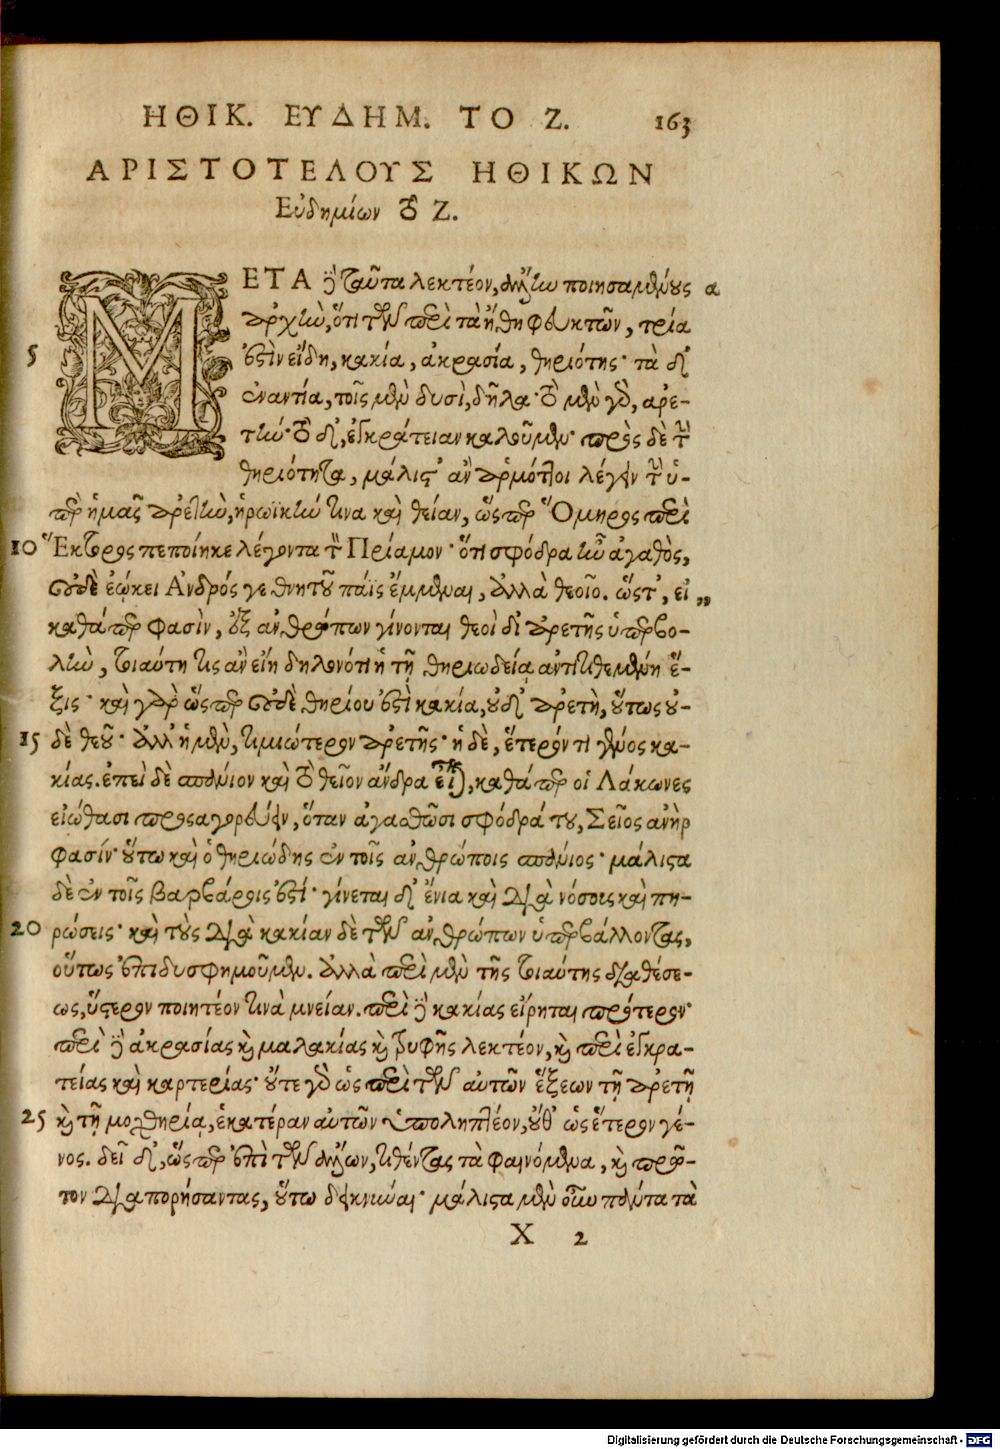 ΗΘΙΚ. ΕΥΔΗΜ. ΤΟ Ζ. 163
ΑΡΙΣΤΟΤΕΛΟΥΣ ΗΘΙΚΩΝ
Εὐδημίων τὸ Ζ.
ΜΕΤΑ δὲ ταῦτα λεκτέον, ἄλλην ποιησαμένους α
ἀρχὴν, ὅτι τῶν περὶ τὰ ἤθη φευκτῶν, τρία
5 ἐστὶν εἴδη, κακία, ἀκρασία, θηριότης· τὰ δ'
ἐναντία, τοῖς μὲν δυσὶ, δῆλα· τὸ μὲν γὰρ, ἀρε-
τὴν· τὸ δ', ἐγκράτειαν καλοῦμεν· πρὸς δὲ τὴν
θηριότητα, μάλιστ' ἂν ἁρμόττοι λέγειν τὴν ὑ-
πὲρ ἡμᾶς ἀρετὴν, ἡρωϊκήν τινα καὶ θείαν, ὥσπερ Ὅμηρος περὶ
10 Ἕκτορος πεποίηκε λέγοντα τὸν Πρίαμον· ὅτι σφόδρα ἦν ἀγαθὸς,
οὐδὲ ἐῴκει Ἀνδρός γε θνητοῦ πάϊς ἔμμεναι, ἀλλὰ θεοῖο. ὥστ', εἰ „
καθάπερ φασὶν, ἐξ ἀνθρώπων γίνονται θεοὶ δι' ἀρετῆς ὑπερβο-
λὴν, τοιαύτη τις ἂν εἴη δηλονότι ἡ τῇ θηριωδείᾳ ἀντιτιθεμένη ἕ-
ξις· καὶ γὰρ ὥσπερ οὐδὲ θηρίου ἐστὶ κακία, οὐδ' ἀρετὴ, οὕτως οὐ-
15 δὲ θεοῦ· ἀλλ' ἡ μὲν, τιμιώτερον ἀρετῆς· ἡ δὲ, ἕτερόν τι γένος κα-
κίας. ἐπεὶ δὲ σπάνιον καὶ τὸ θεῖον ἄνδρα εἶναι, καθάπερ οἱ Λάκωνες
εἰώθασι προσαγορεύειν, ὅταν ἀγασθῶσι σφόδρά του, Σεῖος ἀνὴρ
φασίν· οὕτω καὶ ὁ θηριώδης ἐν τοῖς ἀνθρώποις σπάνιος· μάλιστα
δὲ ἐν τοῖς βαρβάροις ἐστί· γίνεται δ' ἔνια καὶ διὰ νόσοις καὶ πη-
20 ρώσεις· καὶ τοὺς διὰ κακίαν δὲ τῶν ἀνθρώπων ὑπερβάλλοντας,
οὕτως ἐπιδυσφημοῦμεν. ἀλλὰ περὶ μὲν τῆς τοιαύτης διαθέσε-
ως, ὕστερον ποιητέον τινὰ μνείαν. περὶ δὲ κακίας εἴρηται πρότερον·
περὶ δὲ ἀκρασίας καὶ μαλακίας καὶ τρυφῆς λεκτέον, καὶ περὶ ἐγκρα-
τείας καὶ καρτερίας· οὔτε γὰρ ὡς περὶ τῶν αὐτῶν ἕξεων τῇ ἀρετῇ
25 καὶ τῇ μοχθηρίᾳ, ἑκατέραν αὐτῶν ὑποληπτέον, οὔθ' ὡς ἕτερον γέ-
νος. δεῖ δ', ὥσπερ ἐπὶ τῶν ἄλλων, τιθέντας τὰ φαινόμενα, καὶ πρῶ-
τον διαπορήσαντας, οὕτω δεικνύναι· μάλιστα μὲν οὖν πάντα τὰ
Χ 2
Digitalisierung gefördert durch die Deutsche Forschungsgemeinschaft - DFG